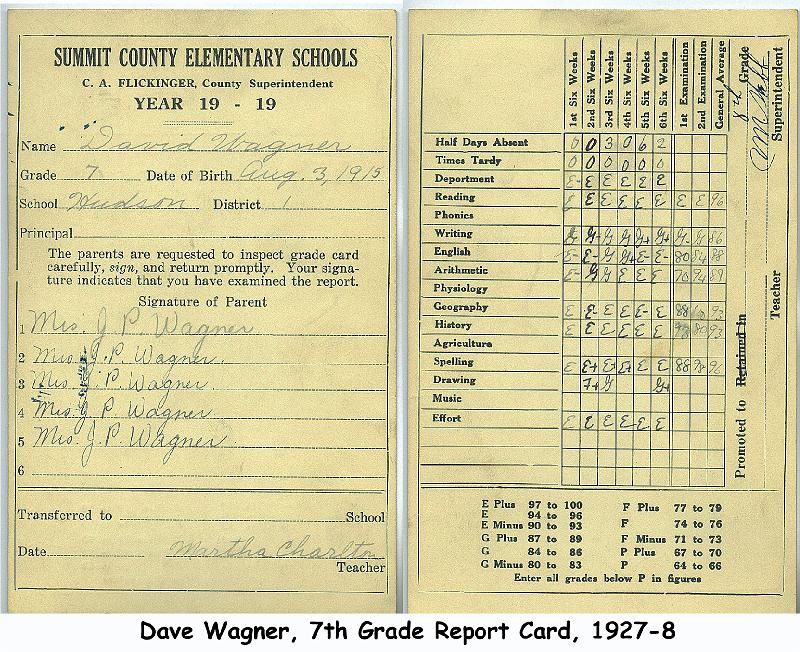 SUMMIT COUNTY ELEMENTARY SCHOOLS
C. A. FLICKINGER, County Superintendent
YEAR 19 - 19
Name David Wagner
Grade 7 Date of Birth Aug. 3, 1915
School Hudson District 1
Principal
The parents are requested to inspect grade card
carefully, sign, and return promptly. Your signa-
ture indicates that you have examined the report.
Signature of Parent
1 Mrs. J. P. Wagner
2 Mrs. J. P. Wagner.
3 Mrs. J. P. Wagner.
4 Mrs. J. P. Wagner
5 Mrs. J. P. Wagner.
6
Transferred to School
Date Martha Charlton
Teacher
1st Six Weeks
2nd Six Weeks
3rd Six Weeks
4th Six Weeks
5th Six Weeks
6th Six Weeks
1st Examination
2nd Examination
General Average
Half Days Absent 0 0 3 0 6 2
Times Tardy 0 0 0 0 0 0
Department E- E E E E E
Reading E E E E E E E E 96
Phonics
Writing G G- G G G+ G+ G- G 86
English E- E- G G+ E- E- 80 84 88
Arithmetic E- G G E E E 70 94 89
Physiology
Geography E E- E E E- E 88 93
History E E E E E E 80 93
Agriculture
Spelling E E+ E+ E+ E E 88 98 96
Drawing F+ G G+
Music
Effort E E E E E E
Promoted to Retained in 8th Grade
Superintendent
Teacher
E Plus 97 to 100
E 94 to 96
E Minus 90 to 93
G Plus 87 to 89
G 84 to 86
G Minus 80 to 83
F Plus 77 to 79
F 74 to 76
F Minus 71 to 73
P Plus 67 to 70
P 64 to 66
Enter all grades below P in figures
Dave Wagner, 7th Grade Report Card, 1927-8